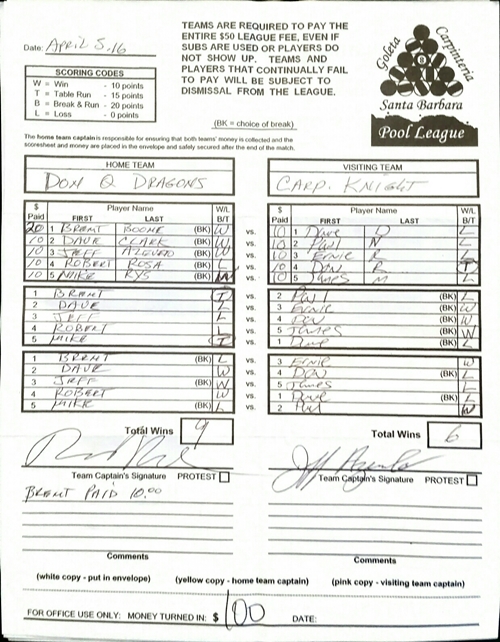 Date: April 5, 16
TEAMS ARE REQUIRED TO PAY THE
ENTIRE $50 LEAGUE FEE, EVEN IF
SUBS ARE USED OR PLAYERS DO
NOT SHOW UP. TEAMS AND
PLAYERS THAT CONTINUALLY FAIL
TO PAY WILL BE SUBJECT TO
DISMISSAL FROM THE LEAGUE.
Goleta
Carpinteria
Santa Barbara
Pool League
SCORING CODES
W = Win - 10 points
T = Table Run - 15 points
B = Break & Run - 20 points
L = Loss - 0 points
(BK = choice of break)
The home team captain is responsible for ensuring that both teams' money is collected and the
scoresheet and money are placed in the envelope and safely secured after the end of the match.
HOME TEAM
DON Q DRAGONS
$ Paid Player Name FIRST LAST W/L B/T
20 1 BRENT BOONE (BK) W vs.
10 2 DAVE CLARK (BK) W vs.
10 3 JEFF (BK) W vs.
10 4 ROBERT ROSA (BK) L vs.
10 5 MIKE RYS (BK) vs.
1 BRENT T vs.
2 DAVE L vs.
3 JEFF L vs.
4 ROBERT L vs.
5 MIKE T vs.
1 BRENT (BK) L vs.
2 DAVE W vs.
3 JEFF (BK) W vs.
4 ROBERT W vs.
5 MIKE (BK) L vs.
Total Wins 9
Team Captain's Signature PROTEST
BRENT PAID 10.00
Comments
VISITING TEAM
CARP. KNIGHT
$ Paid Player Name FIRST LAST W/L B/T
10 1 Dave D L
10 2 Paul N L
10 3 Ernie R L
10 4 Don B T
10 5 James M L
2 Paul (BK) L
3 Ernie (BK) W
4 Don (BK) W
5 James (BK) W
1 Dave (BK) L
3 Ernie W
4 Don (BK) L
5 James L
1 Dave (BK) L
2 Paul W
Total Wins 6
Team Captain's Signature PROTEST
Comments
(white copy - put in envelope) (yellow copy - home team captain) (pink copy - visiting team captain)
FOR OFFICE USE ONLY: MONEY TURNED IN: $ 100 DATE: